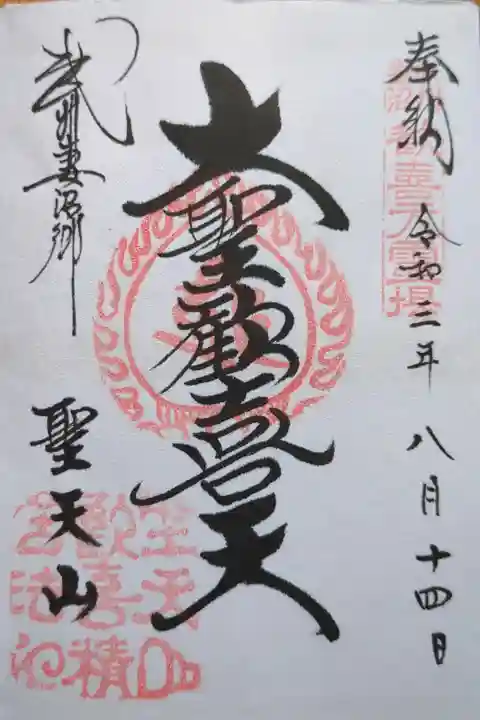 奉納 令和三年八月十四日
大聖歓喜天
武州妻沼郷
聖天山